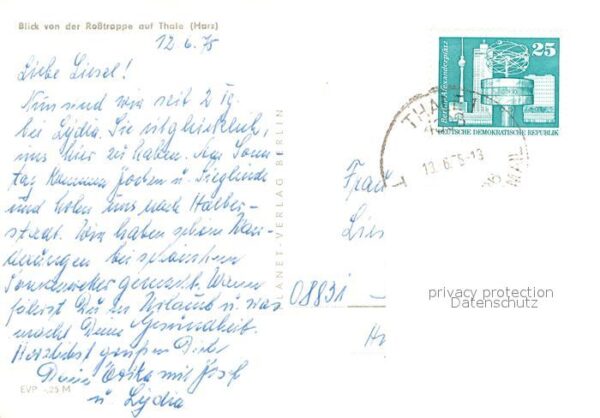 Blick von der Roßtrappe auf Thale (Harz)
12.6.75
Liebe Liesel!
Nun sind wir seit 2 Tg.
bei Lydia. Sie ist glücklich,
uns hier zu haben. Am Sonn
tag kommen Jochen u. Sieglinde
und holen uns nach Halber-
stadt. Wir haben schon Wan-
derungen bei schönstem
Sonnenwetter gemacht. Wann
fährst Du in Urlaub u. was
macht Deine Gesundheit.
Herzlichst grüßen Dich
Deine Erika mit Josef
u. Lydia
EVP 0,25 M
PLANET-VERLAG BERLIN
25
Berlin, Alexanderplatz
DEUTSCHE DEMOKRATISCHE REPUBLIK
THALE
13.6.75-13
Frau
Lies
08831
privacy protection
Datenschutz